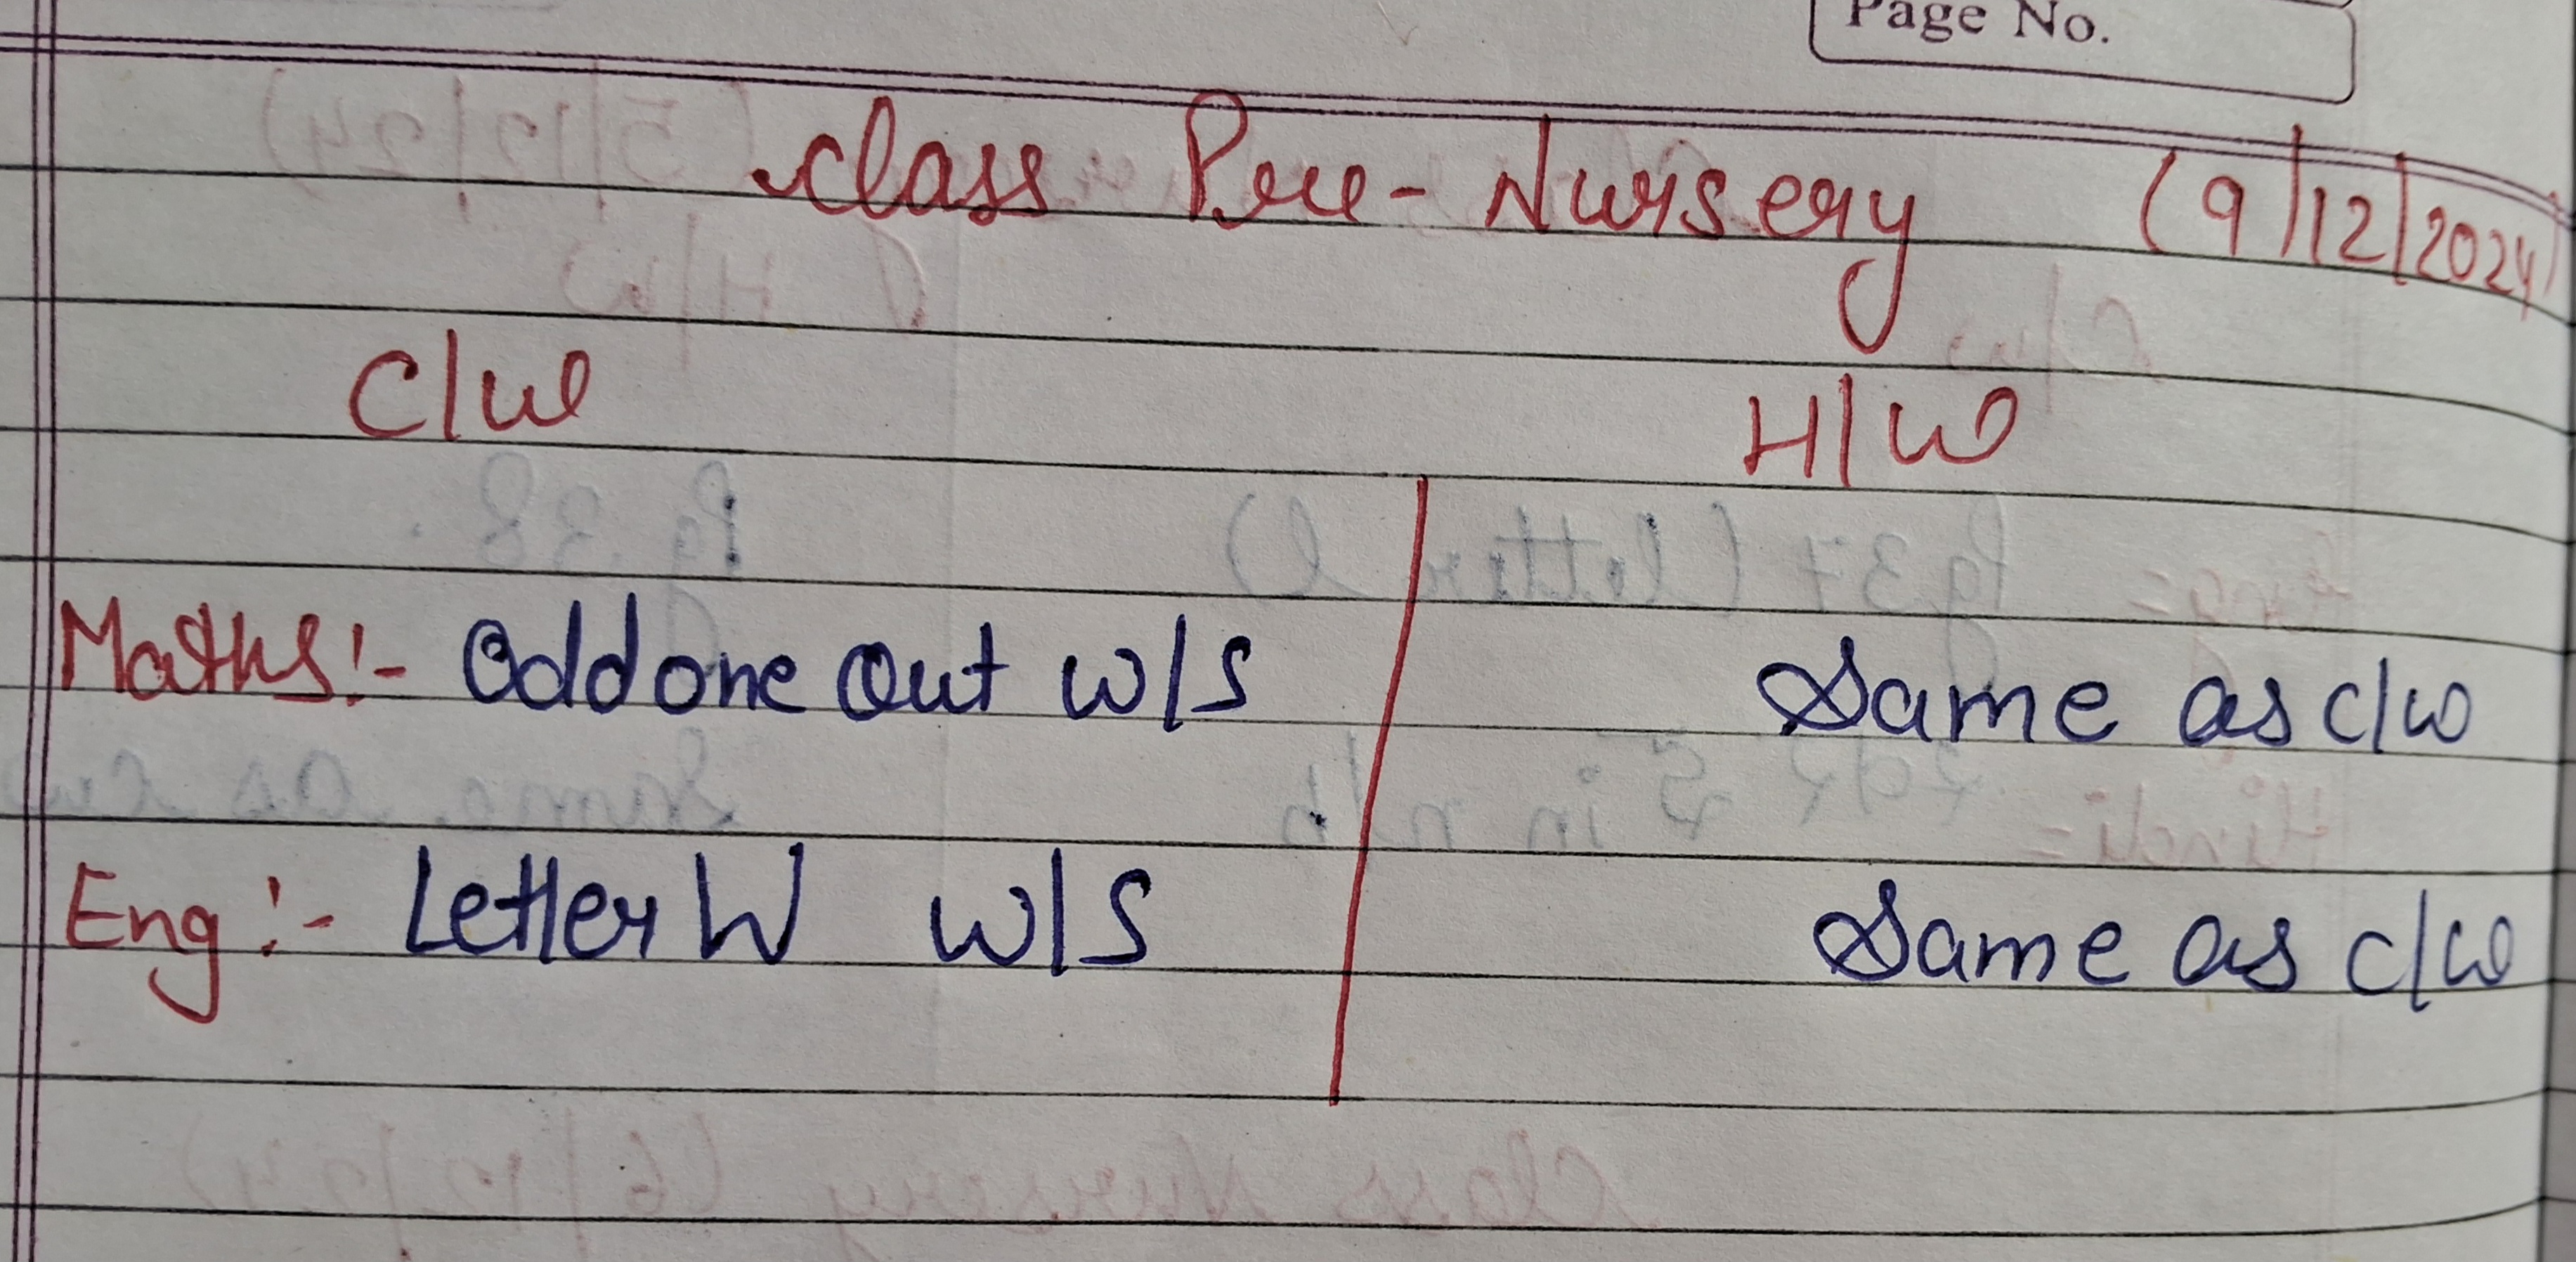 Page No.
Class Pre-Nursery (9/12/2024)
C/W H/W
Maths:- Odd one Out W/S Same as c/w
Eng:- Letter W W/S Same as c/w